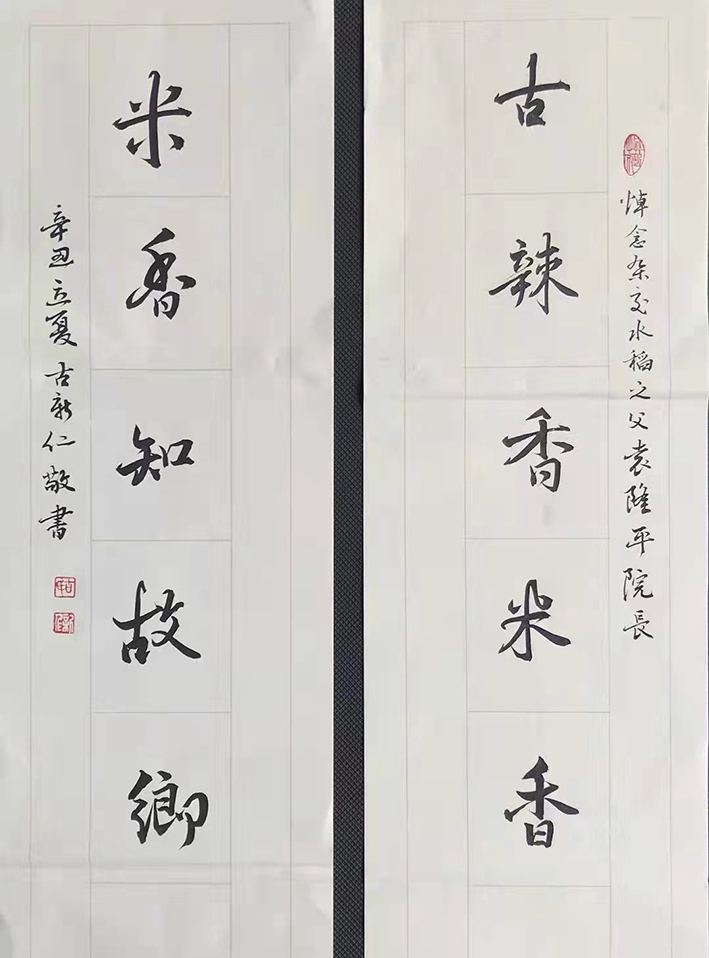 悼念杂交水稻之父袁隆平院長
古辣香米香
米香知故鄉
辛丑立夏古新仁敬書